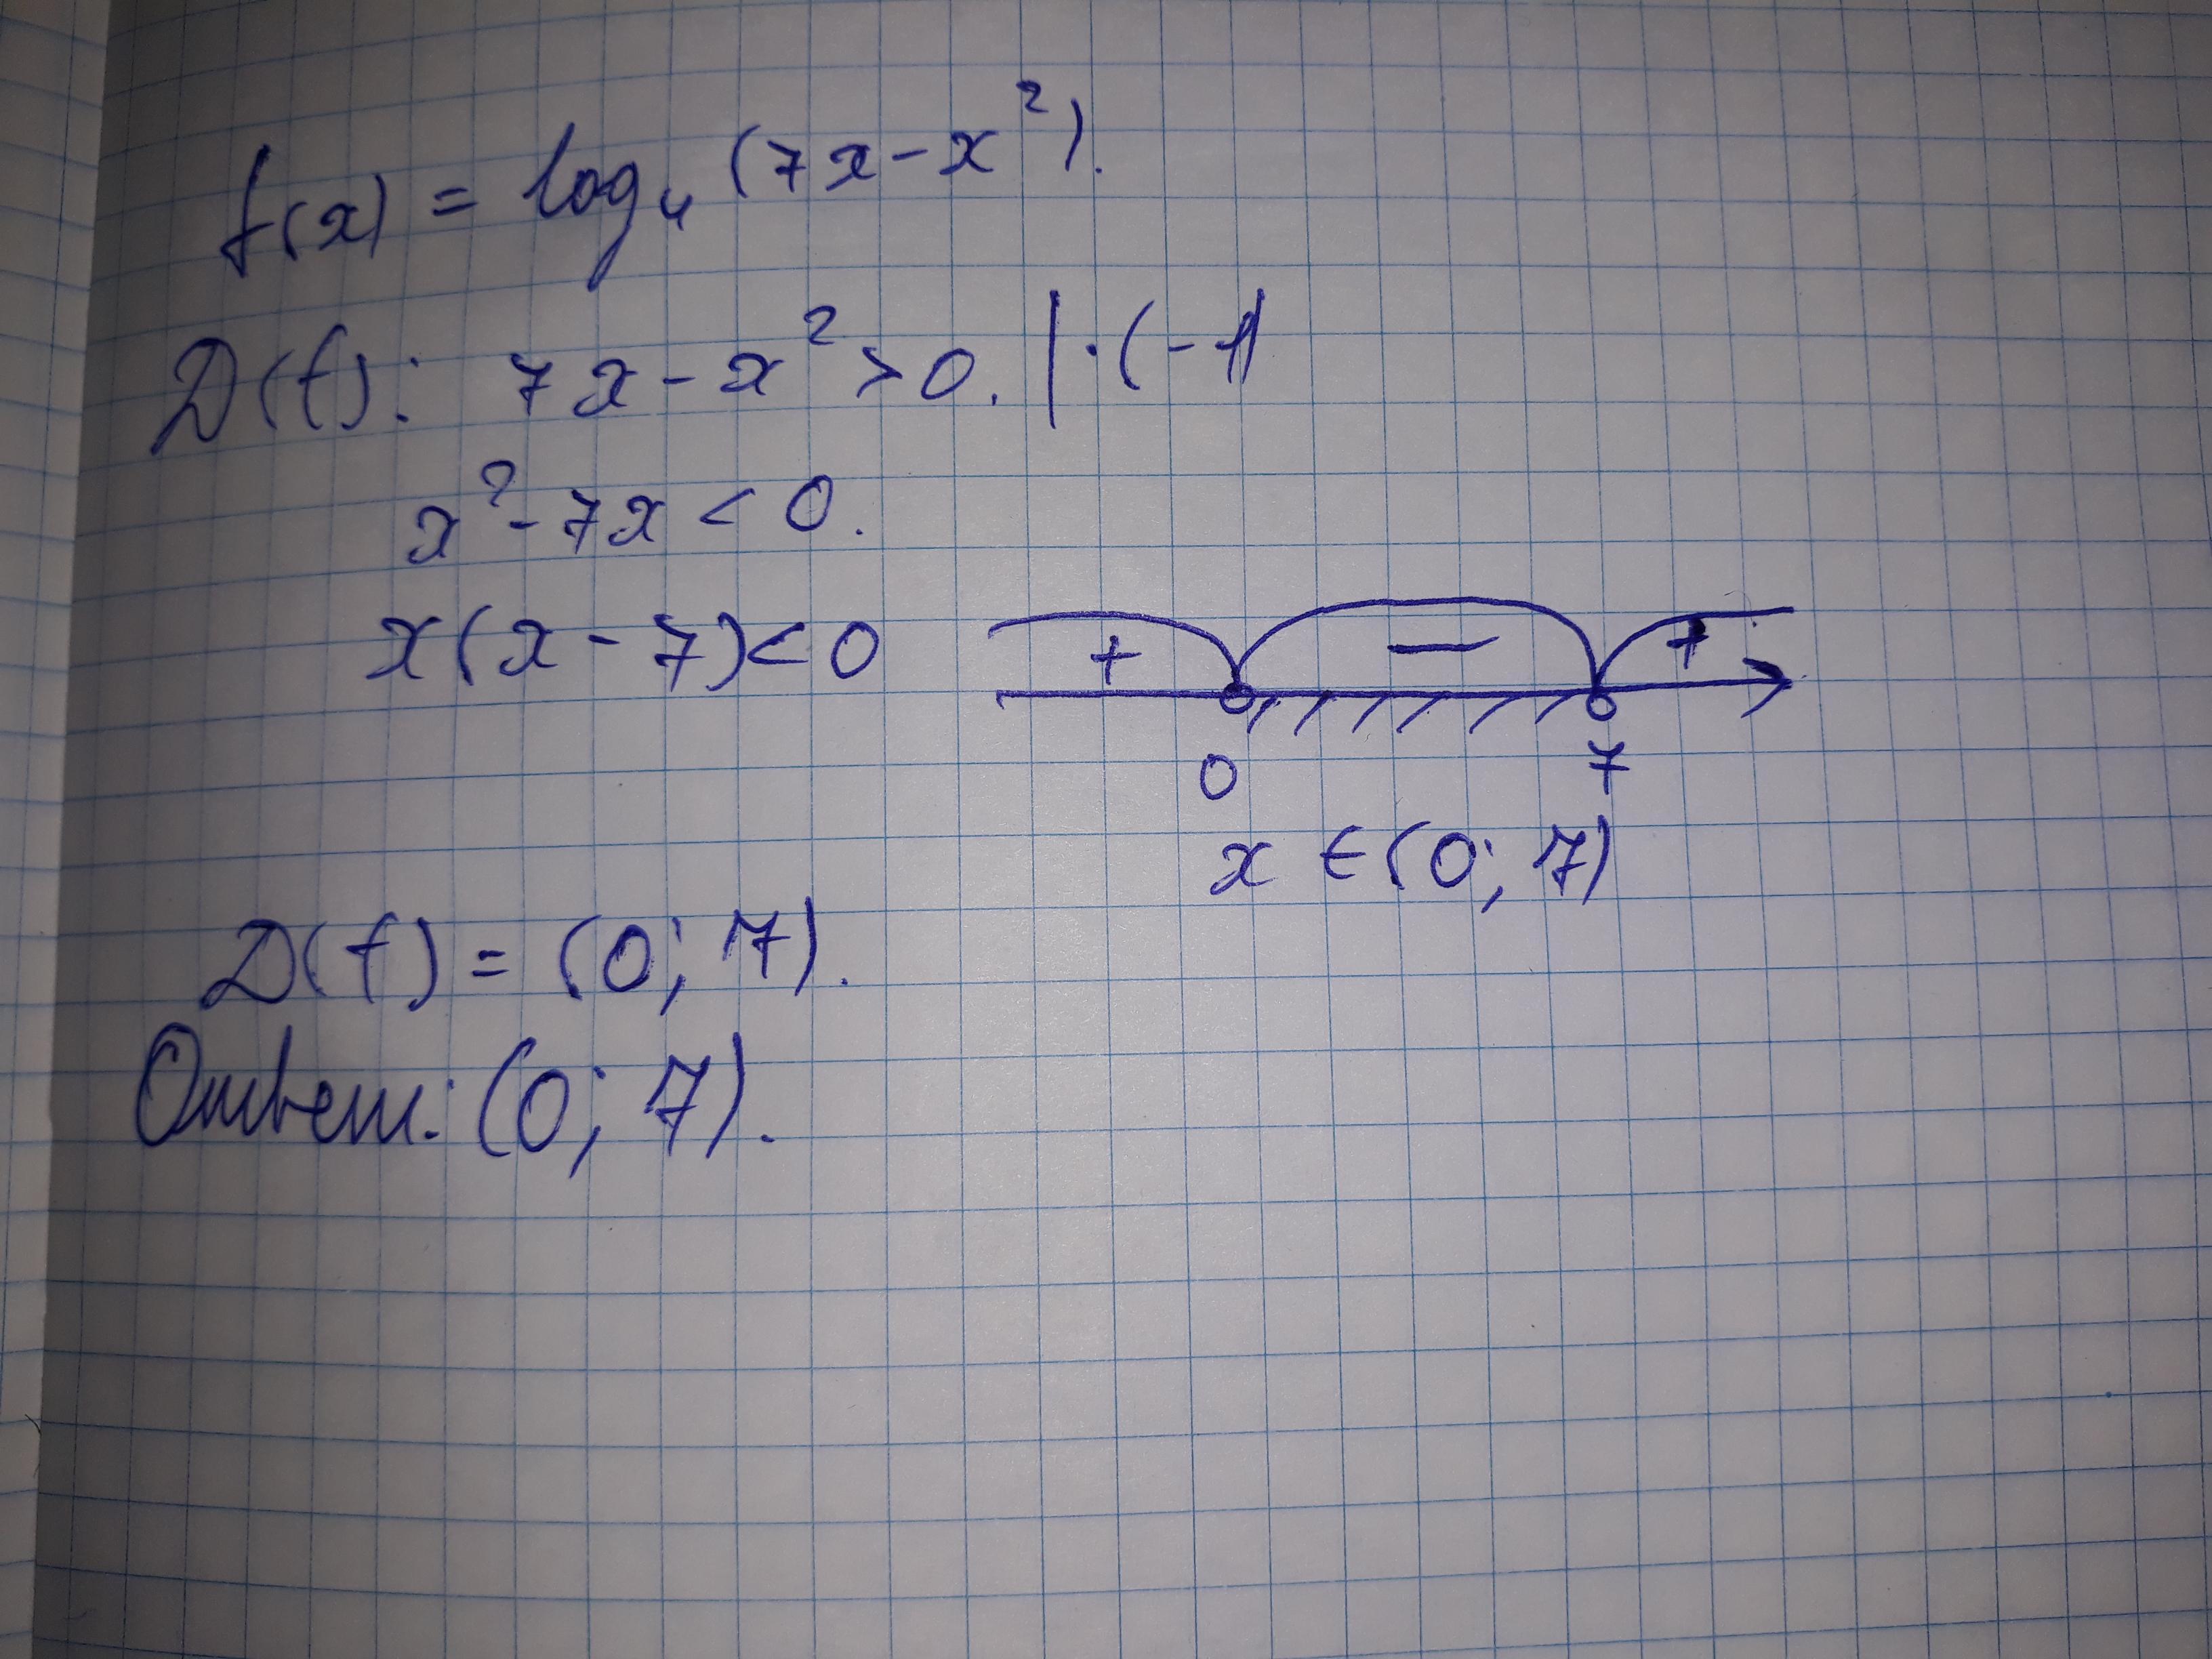 f(x) = log₄ (7x - x²).
D(f): 7x - x² > 0. | · (-1)
x² - 7x < 0.
x(x - 7) < 0
+ − +
0 7
x ∈ (0; 7)
D(f) = (0; 7).
Ответ: (0; 7).